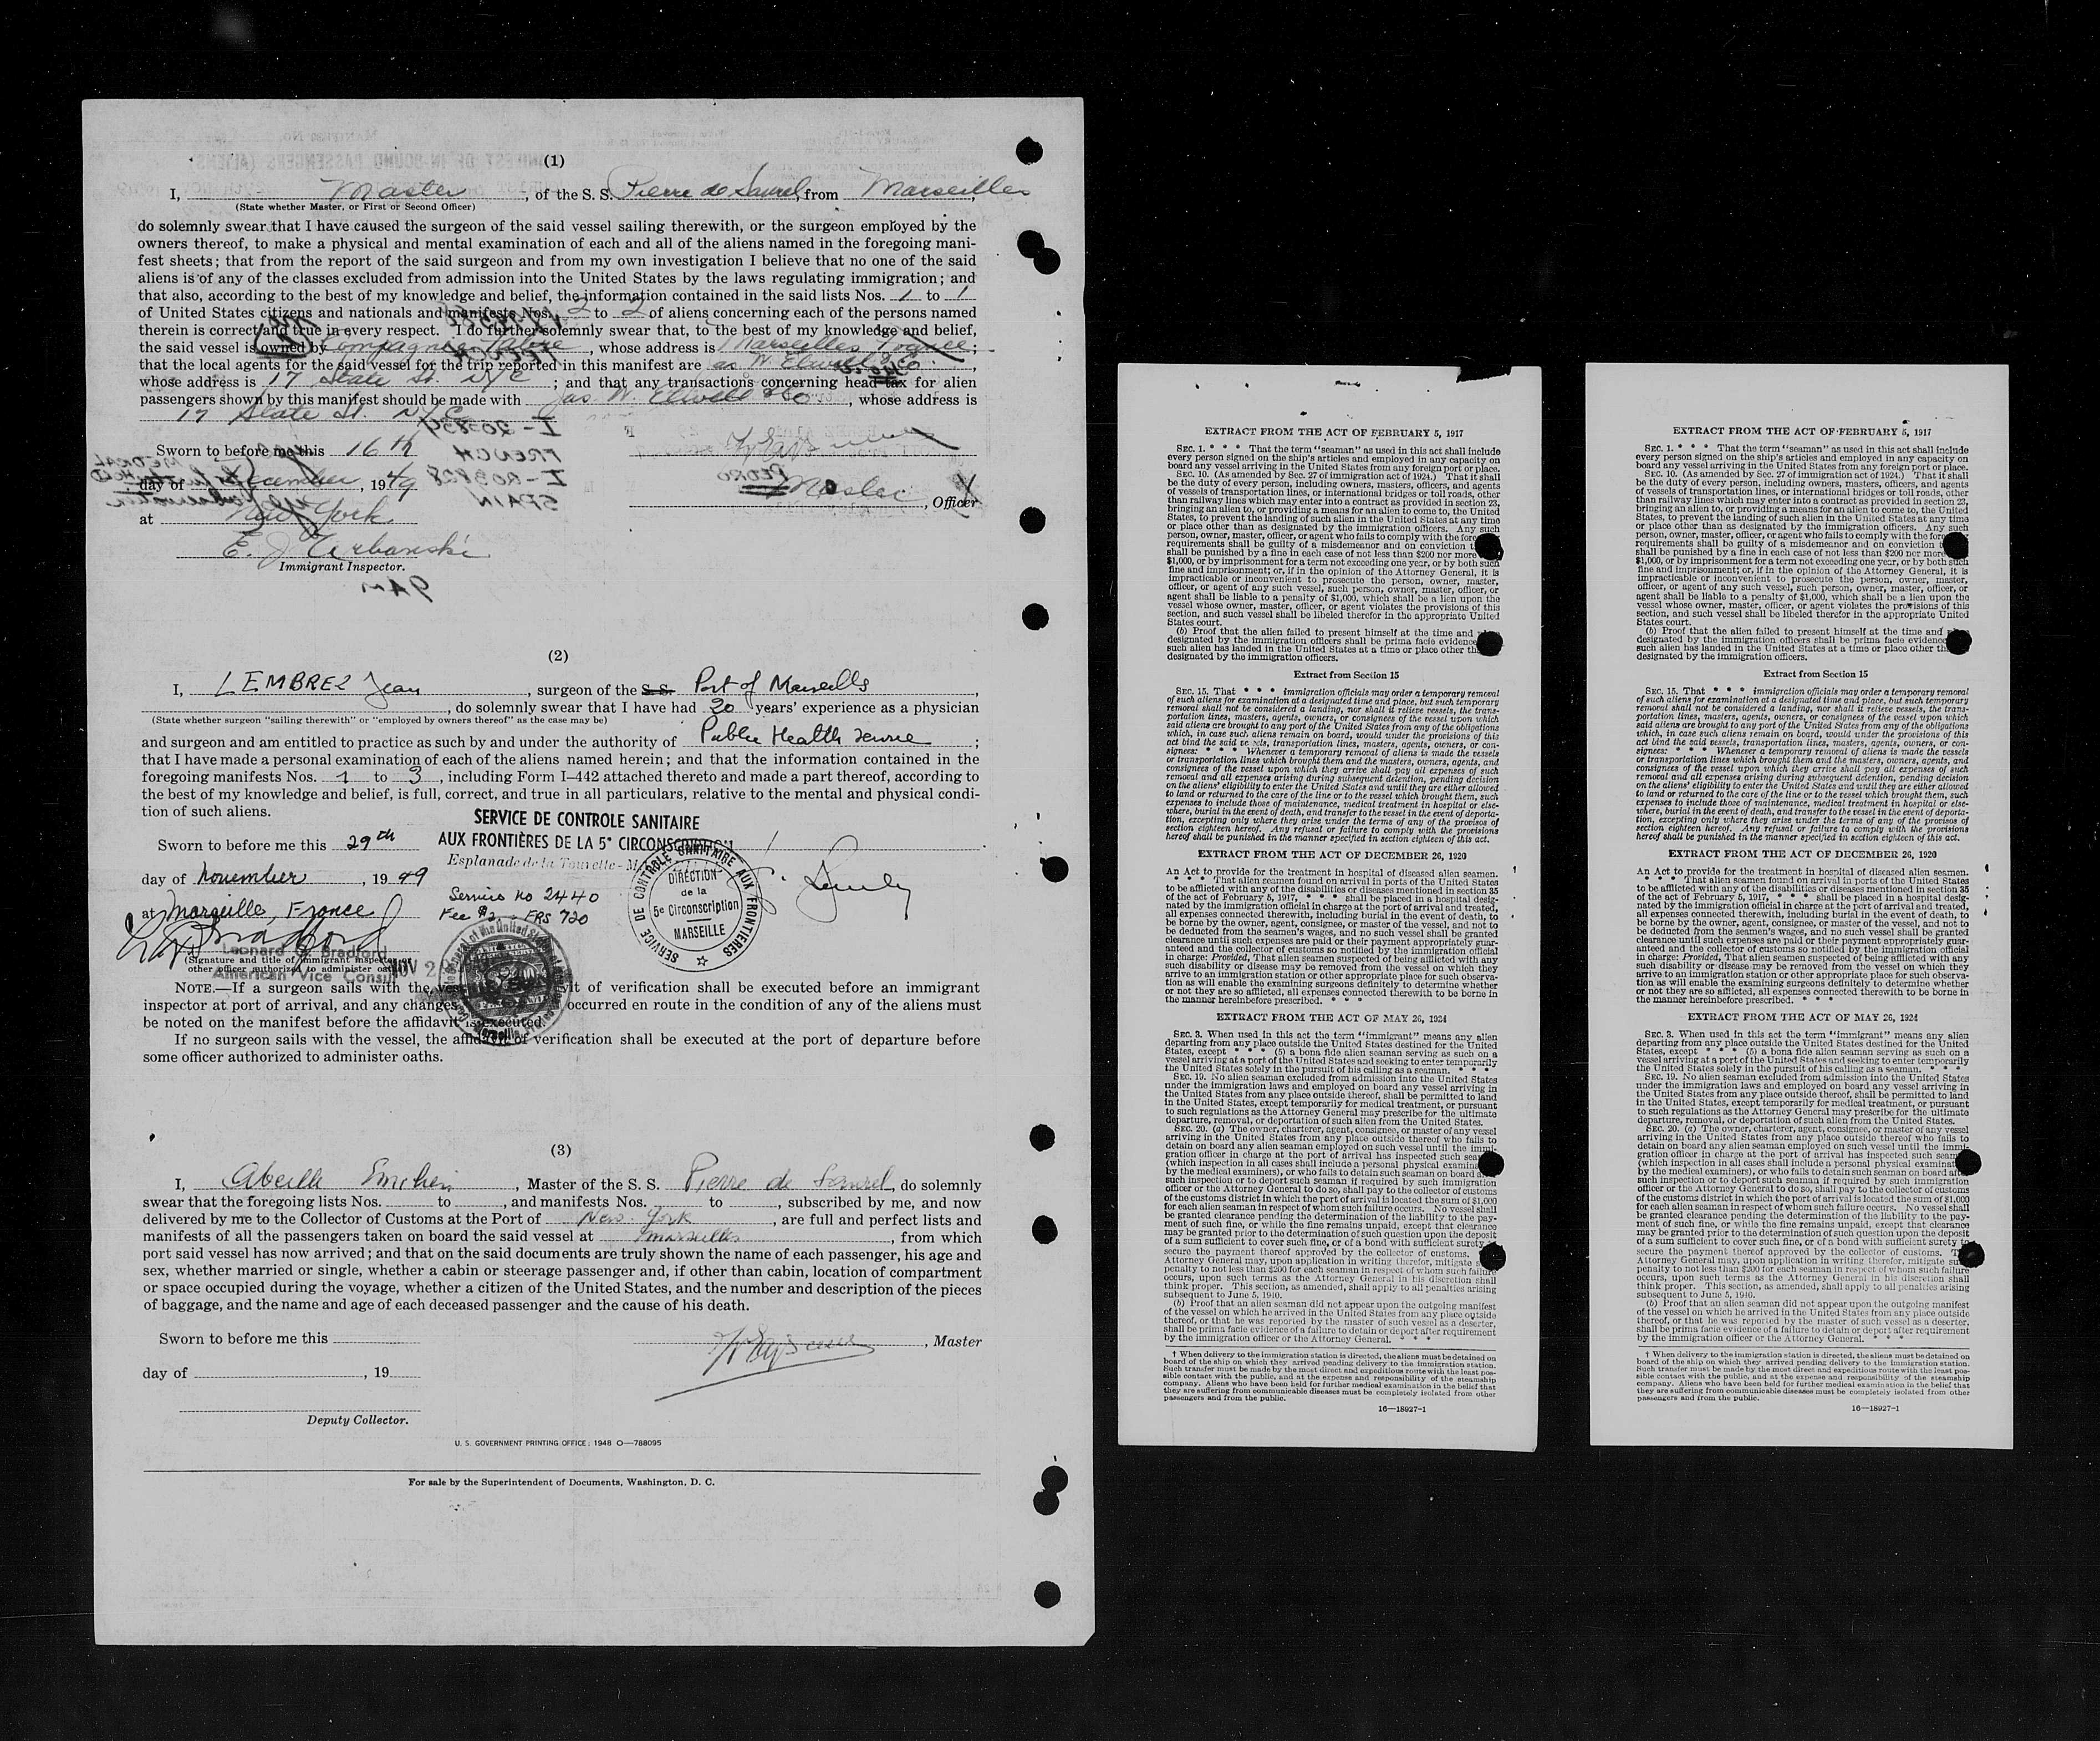 (1)
I, Master, of the S. S. Pierre de Saurel, from Marseilles,
(State whether Master, or First or Second Officer)
do solemnly swear that I have caused the surgeon of the said vessel sailing therewith, or the surgeon employed by the
owners thereof, to make a physical and mental examination of each and all of the aliens named in the foregoing mani-
fest sheets; that from the report of the said surgeon and from my own investigation I believe that no one of the said
aliens is of any of the classes excluded from admission into the United States by the laws regulating immigration; and
that also, according to the best of my knowledge and belief, the information contained in the said lists Nos. 1 to 1
of United States citizens and nationals and manifests Nos. 2 to 2 of aliens concerning each of the persons named
therein is correct and true in every respect. I do further solemnly swear that, to the best of my knowledge and belief,
the said vessel is owned by Compagnie, whose address is Marseilles France;
that the local agents for the said vessel for the trip reported in this manifest are Jas W. Elwell & Co.,
whose address is 17 State St. N/C; and that any transactions concerning head tax for alien
passengers shown by this manifest should be made with Jas W. Elwell & Co., whose address is
17 State St. N/C
Sworn to before me this 16th
day of December, 1949
Master, Officer
at New York
E. J. Urbanski
Immigrant Inspector.
(2)
I, LEMBREZ Jean, surgeon of the S.S. Port of Marseilles,
, do solemnly swear that I have had 20 years' experience as a physician
(State whether surgeon "sailing therewith" or "employed by owners thereof" as the case may be)
and surgeon and am entitled to practice as such by and under the authority of Public Health Service;
that I have made a personal examination of each of the aliens named herein; and that the information contained in the
foregoing manifests Nos. 1 to 3, including Form I–442 attached thereto and made a part thereof, according to
the best of my knowledge and belief, is full, correct, and true in all particulars, relative to the mental and physical condi-
tion of such aliens.
SERVICE DE CONTROLE SANITAIRE
AUX FRONTIÈRES DE LA 5e
Esplanade de la Tourette
Sworn to before me this 29th
day of November, 1949
at Marseille, France
Service No 2440
Fee $2 = FRS 720
SERVICE DE CONTROLE SANITAIRE AUX FRONTIERES
DIRECTION
de la
5e Circonscription
MARSEILLE
Leonard G. Bradford
American Vice Consul
(Signature and title of immigrant inspector or
other officer authorized to administer oath)
NOTE.—If a surgeon sails with the of verification shall be executed before an immigrant
inspector at port of arrival, and any changes occurred en route in the condition of any of the aliens must
be noted on the manifest before the affidavit is executed.
If no surgeon sails with the vessel, the affidavit of verification shall be executed at the port of departure before
some officer authorized to administer oaths.
(3)
I, Abeille Emilien, Master of the S. S. Pierre de Saurel, do solemnly
swear that the foregoing lists Nos. to , and manifests Nos. to , subscribed by me, and now
delivered by me to the Collector of Customs at the Port of New York, are full and perfect lists and
manifests of all the passengers taken on board the said vessel at Marseilles, from which
port said vessel has now arrived; and that on the said documents are truly shown the name of each passenger, his age and
sex, whether married or single, whether a cabin or steerage passenger and, if other than cabin, location of compartment
or space occupied during the voyage, whether a citizen of the United States, and the number and description of the pieces
of baggage, and the name and age of each deceased passenger and the cause of his death.
Sworn to before me this
, Master
day of , 19
Deputy Collector.
U. S. GOVERNMENT PRINTING OFFICE: 1948 O—788095
For sale by the Superintendent of Documents, Washington, D. C.
EXTRACT FROM THE ACT OF FEBRUARY 5, 1917
SEC. 1. * * * That the term "seaman" as used in this act shall include
every person signed on the ship's articles and employed in any capacity on
board any vessel arriving in the United States from any foreign port or place.
SEC. 10. (As amended by Sec. 27 of immigration act of 1924.) That it shall
be the duty of every person, including owners, masters, officers, and agents
of vessels of transportation lines, or international bridges or toll roads, other
than railway lines which may enter into a contract as provided in section 23,
bringing an alien to, or providing a means for an alien to come to, the United
States, to prevent the landing of such alien in the United States at any time
or place other than as designated by the immigration officers. Any such
person, owner, master, officer, or agent who fails to comply with the fore
requirements shall be guilty of a misdemeanor and on conviction
shall be punished by a fine in each case of not less than $200 nor more
$1,000, or by imprisonment for a term not exceeding one year, or by both such
fine and imprisonment; or, if in the opinion of the Attorney General, it is
impracticable or inconvenient to prosecute the person, owner, master,
officer, or agent of any such vessel, such person, owner, master, officer, or
agent shall be liable to a penalty of $1,000, which shall be a lien upon the
vessel whose owner, master, officer, or agent violates the provisions of this
section, and such vessel shall be libeled therefor in the appropriate United
States court.
(b) Proof that the alien failed to present himself at the time and
designated by the immigration officers shall be prima facie evidence
such alien has landed in the United States at a time or place other th
designated by the immigration officers.
Extract from Section 15
SEC. 15. That * * * immigration officials may order a temporary removal
of such aliens for examination at a designated time and place, but such temporary
removal shall not be considered a landing, nor shall it relieve vessels, the trans-
portation lines, masters, agents, owners, or consignees of the vessel upon which
said aliens are brought to any port of the United States from any of the obligations
which, in case such aliens remain on board, would under the provisions of this
act bind the said vessels, transportation lines, masters, agents, owners, or con-
signees: * * * Whenever a temporary removal of aliens is made the vessels
or transportation lines which brought them and the masters, owners, agents, and
consignees of the vessel upon which they arrive shall pay all expenses of such
removal and all expenses arising during subsequent detention, pending decision
on the aliens' eligibility to enter the United States and until they are either allowed
to land or returned to the care of the line or to the vessel which brought them, such
expenses to include those of maintenance, medical treatment in hospital or else-
where, burial in the event of death, and transfer to the vessel in the event of deporta-
tion, excepting only where they arise under the terms of any of the provisos of
section eighteen hereof. Any refusal or failure to comply with the provisions
hereof shall be punished in the manner specified in section eighteen of this act.
EXTRACT FROM THE ACT OF DECEMBER 26, 1920
An Act to provide for the treatment in hospital of diseased alien seamen.
* * * That alien seamen found on arrival in ports of the United States
to be afflicted with any of the disabilities or diseases mentioned in section 35
of the act of February 5, 1917, * * * shall be placed in a hospital desig-
nated by the immigration official in charge at the port of arrival and treated,
all expenses connected therewith, including burial in the event of death, to
be borne by the owner, agent, consignee, or master of the vessel, and not to
be deducted from the seamen's wages, and no such vessel shall be granted
clearance until such expenses are paid or their payment appropriately guar-
anteed and the collector of customs so notified by the immigration official
in charge: Provided, That alien seamen suspected of being afflicted with any
such disability or disease may be removed from the vessel on which they
arrive to an immigration station or other appropriate place for such observa-
tion as will enable the examining surgeons definitely to determine whether
or not they are so afflicted, all expenses connected therewith to be borne in
the manner hereinbefore prescribed. * * *
EXTRACT FROM THE ACT OF MAY 26, 1924
SEC. 3. When used in this act the term "immigrant" means any alien
departing from any place outside the United States destined for the United
States, except * * * (5) a bona fide alien seaman serving as such on a
vessel arriving at a port of the United States and seeking to enter temporarily
the United States solely in the pursuit of his calling as a seaman. * * *
SEC. 19. No alien seaman excluded from admission into the United States
under the immigration laws and employed on board any vessel arriving in
the United States from any place outside thereof, shall be permitted to land
in the United States, except temporarily for medical treatment, or pursuant
to such regulations as the Attorney General may prescribe for the ultimate
departure, removal, or deportation of such alien from the United States.
SEC. 20. (a) The owner, charterer, agent, consignee, or master of any vessel
arriving in the United States from any place outside thereof who fails to
detain on board any alien seaman employed on such vessel until the immi-
gration officer in charge at the port of arrival has inspected such sea
(which inspection in all cases shall include a personal physical examina
by the medical examiners), or who fails to detain such seaman on board
such inspection or to deport such seaman if required by such immigration
officer or the Attorney General to do so, shall pay to the collector of customs
of the customs district in which the port of arrival is located the sum of $1,000
for each alien seaman in respect of whom such failure occurs. No vessel shall
be granted clearance pending the determination of the liability to the pay-
ment of such fine, or while the fine remains unpaid, except that clearance
may be granted prior to the determination of such question upon the deposit
of a sum sufficient to cover such fine, or of a bond with sufficient surety
secure the payment thereof approved by the collector of customs.
Attorney General may, upon application in writing therefor, mitigate
penalty to not less than $200 for each seaman in respect of whom such failure
occurs, upon such terms as the Attorney General in his discretion shall
think proper. This section, as amended, shall apply to all penalties arising
subsequent to June 5, 1940.
(b) Proof that an alien seaman did not appear upon the outgoing manifest
of the vessel on which he arrived in the United States from any place outside
thereof, or that he was reported by the master of such vessel as a deserter,
shall be prima facie evidence of a failure to detain or deport after requirement
by the immigration officer or the Attorney General. * * *
† When delivery to the immigration station is directed, the aliens must be detained on
board of the ship on which they arrived pending delivery to the immigration station.
Such transfer must be made by the most direct and expeditious route with the least pos-
sible contact with the public, and at the expense and responsibility of the steamship
company. Aliens who have been held for further medical examination in the belief that
they are suffering from communicable diseases must be completely isolated from other
passengers and from the public.
16—18927-1
EXTRACT FROM THE ACT OF FEBRUARY 5, 1917
SEC. 1. * * * That the term "seaman" as used in this act shall include
every person signed on the ship's articles and employed in any capacity on
board any vessel arriving in the United States from any foreign port or place.
SEC. 10. (As amended by Sec. 27 of immigration act of 1924.) That it shall
be the duty of every person, including owners, masters, officers, and agents
of vessels of transportation lines, or international bridges or toll roads, other
than railway lines which may enter into a contract as provided in section 23,
bringing an alien to, or providing a means for an alien to come to, the United
States, to prevent the landing of such alien in the United States at any time
or place other than as designated by the immigration officers. Any such
person, owner, master, officer, or agent who fails to comply with the fore
requirements shall be guilty of a misdemeanor and on conviction
shall be punished by a fine in each case of not less than $200 nor more
$1,000, or by imprisonment for a term not exceeding one year, or by both such
fine and imprisonment; or, if in the opinion of the Attorney General, it is
impracticable or inconvenient to prosecute the person, owner, master,
officer, or agent of any such vessel, such person, owner, master, officer, or
agent shall be liable to a penalty of $1,000, which shall be a lien upon the
vessel whose owner, master, officer, or agent violates the provisions of this
section, and such vessel shall be libeled therefor in the appropriate United
States court.
(b) Proof that the alien failed to present himself at the time and
designated by the immigration officers shall be prima facie evidence
such alien has landed in the United States at a time or place other th
designated by the immigration officers.
Extract from Section 15
SEC. 15. That * * * immigration officials may order a temporary removal
of such aliens for examination at a designated time and place, but such temporary
removal shall not be considered a landing, nor shall it relieve vessels, the trans-
portation lines, masters, agents, owners, or consignees of the vessel upon which
said aliens are brought to any port of the United States from any of the obligations
which, in case such aliens remain on board, would under the provisions of this
act bind the said vessels, transportation lines, masters, agents, owners, or con-
signees: * * * Whenever a temporary removal of aliens is made the vessels
or transportation lines which brought them and the masters, owners, agents, and
consignees of the vessel upon which they arrive shall pay all expenses of such
removal and all expenses arising during subsequent detention, pending decision
on the aliens' eligibility to enter the United States and until they are either allowed
to land or returned to the care of the line or to the vessel which brought them, such
expenses to include those of maintenance, medical treatment in hospital or else-
where, burial in the event of death, and transfer to the vessel in the event of deporta-
tion, excepting only where they arise under the terms of any of the provisos of
section eighteen hereof. Any refusal or failure to comply with the provisions
hereof shall be punished in the manner specified in section eighteen of this act.
EXTRACT FROM THE ACT OF DECEMBER 26, 1920
An Act to provide for the treatment in hospital of diseased alien seamen.
* * * That alien seamen found on arrival in ports of the United States
to be afflicted with any of the disabilities or diseases mentioned in section 35
of the act of February 5, 1917, * * * shall be placed in a hospital desig-
nated by the immigration official in charge at the port of arrival and treated,
all expenses connected therewith, including burial in the event of death, to
be borne by the owner, agent, consignee, or master of the vessel, and not to
be deducted from the seamen's wages, and no such vessel shall be granted
clearance until such expenses are paid or their payment appropriately guar-
anteed and the collector of customs so notified by the immigration official
in charge: Provided, That alien seamen suspected of being afflicted with any
such disability or disease may be removed from the vessel on which they
arrive to an immigration station or other appropriate place for such observa-
tion as will enable the examining surgeons definitely to determine whether
or not they are so afflicted, all expenses connected therewith to be borne in
the manner hereinbefore prescribed. * * *
EXTRACT FROM THE ACT OF MAY 26, 1924
SEC. 3. When used in this act the term "immigrant" means any alien
departing from any place outside the United States destined for the United
States, except * * * (5) a bona fide alien seaman serving as such on a
vessel arriving at a port of the United States and seeking to enter temporarily
the United States solely in the pursuit of his calling as a seaman. * * *
SEC. 19. No alien seaman excluded from admission into the United States
under the immigration laws and employed on board any vessel arriving in
the United States from any place outside thereof, shall be permitted to land
in the United States, except temporarily for medical treatment, or pursuant
to such regulations as the Attorney General may prescribe for the ultimate
departure, removal, or deportation of such alien from the United States.
SEC. 20. (a) The owner, charterer, agent, consignee, or master of any vessel
arriving in the United States from any place outside thereof who fails to
detain on board any alien seaman employed on such vessel until the immi-
gration officer in charge at the port of arrival has inspected such seaman
(which inspection in all cases shall include a personal physical examinat
by the medical examiners), or who fails to detain such seaman on board after
such inspection or to deport such seaman if required by such immigration
officer or the Attorney General to do so, shall pay to the collector of customs
of the customs district in which the port of arrival is located the sum of $1,000
for each alien seaman in respect of whom such failure occurs. No vessel shall
be granted clearance pending the determination of the liability to the pay-
ment of such fine, or while the fine remains unpaid, except that clearance
may be granted prior to the determination of such question upon the deposit
of a sum sufficient to cover such fine, or of a bond with sufficient surety to
secure the payment thereof approved by the collector of customs. T
Attorney General may, upon application in writing therefor, mitigate su
penalty to not less than $200 for each seaman in respect of whom such failure
occurs, upon such terms as the Attorney General in his discretion shall
think proper. This section, as amended, shall apply to all penalties arising
subsequent to June 5, 1940.
(b) Proof that an alien seaman did not appear upon the outgoing manifest
of the vessel on which he arrived in the United States from any place outside
thereof, or that he was reported by the master of such vessel as a deserter,
shall be prima facie evidence of a failure to detain or deport after requirement
by the immigration officer or the Attorney General. * * *
† When delivery to the immigration station is directed, the aliens must be detained on
board of the ship on which they arrived pending delivery to the immigration station.
Such transfer must be made by the most direct and expeditious route with the least pos-
sible contact with the public, and at the expense and responsibility of the steamship
company. Aliens who have been held for further medical examination in the belief that
they are suffering from communicable diseases must be completely isolated from other
passengers and from the public.
16—18927-1